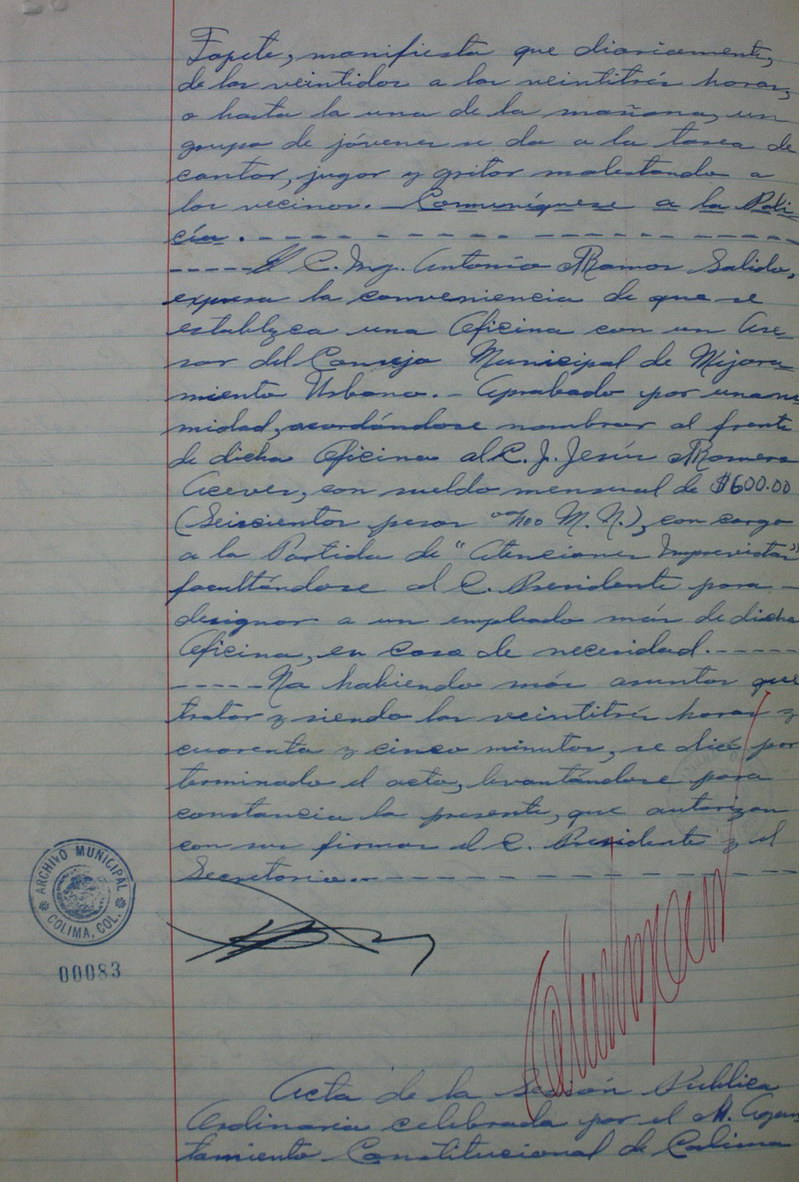 Tapete, manifiesta que diariamente,
de las veintidos a las veintitrés horas,
o hasta la una de la mañana, un
grupo de jóvenes se da a la tarea de
cantar, jugar y gritar molestando a
los vecinos.- Comuníquese a la Poli-
cía.
El C. Ing. Antonio Ramos Salido,
expresa la conveniencia de que se
establezca una Oficina con un Ase-
sor del Consejo Municipal de Mejora-
miento Urbano.- Aprobado por unani-
midad, acordándose nombrar al frente
de dicha Oficina al C. J. Jesús Romero
Aceves, con sueldo mensual de $600.00
(Seiscientos pesos 00/100 M. N.), con cargo
a la Partida de "Atenciones Imprevistas"
facultándose al C. Presidente para
designar a un empleado más de dicha
Oficina, en caso de necesidad.
No habiendo más asuntos que
tratar y siendo las veintitrés horas y
cuarenta y cinco minutos, se dió por
terminado el acto, levantándose para
constancia la presente, que autorizan
con sus firmas el C. Presidente y el
Secretario.
ARCHIVO MUNICIPAL
COLIMA, COL.
00083
Acta de la Sesión Publica
Ordinaria celebrada por el H. Ayun-
tamiento Constitucional de Colima